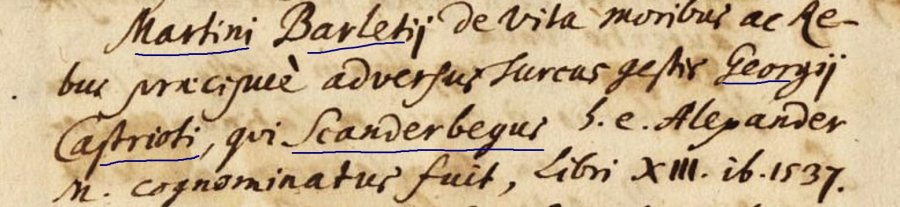 Martini Barletij de Vita moribus ac Re-
bus præcipuè adversus Turcas gestis Georgij
Castrioti, qui Scanderbegus h. e. Alexander
M. cognominatus fuit, Libri XIII. ib. 1537.